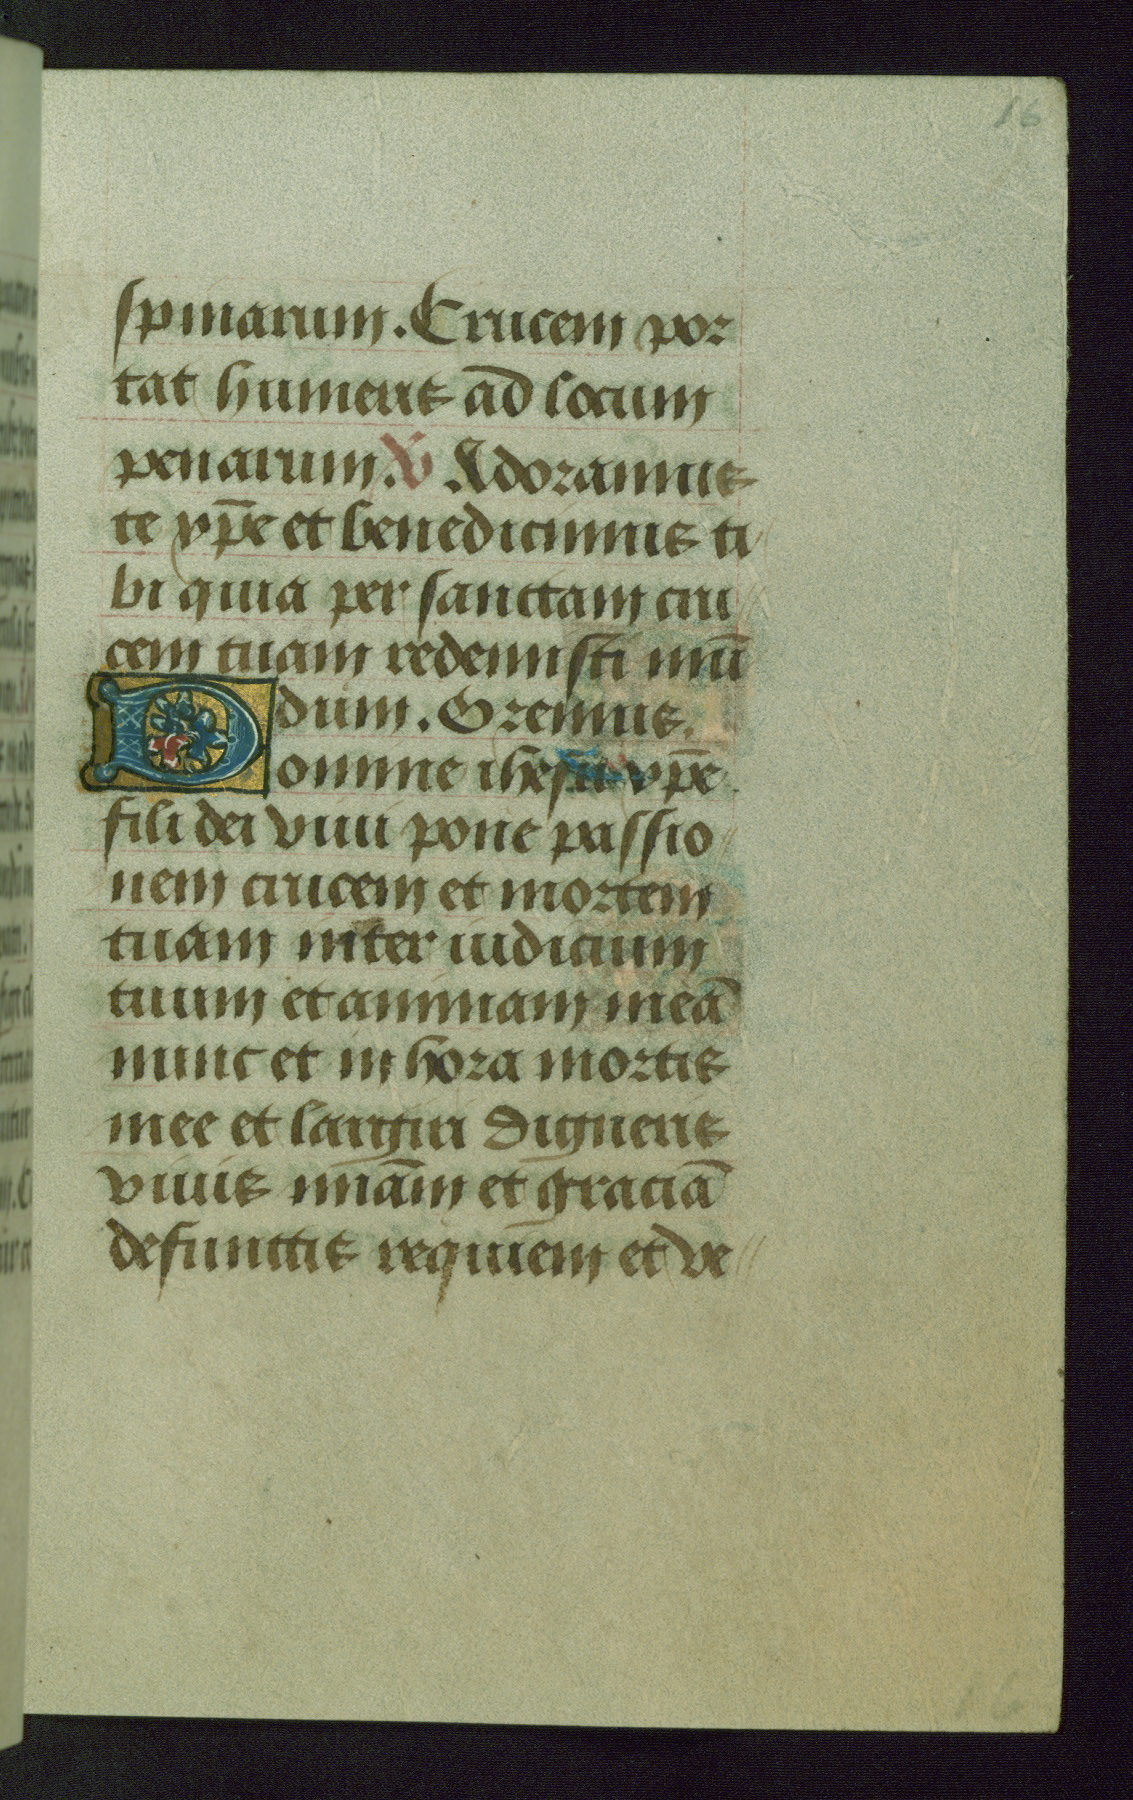 16
spinarum. Crucem por
tat humeris ad locum
penarum. V Adoramus
te xp̄e et benedicimus ti
bi quia per sanctam cru
cem tuam redemisti mū
dum. Oremus.
Domine ihesu xp̄e
fili dei viui pone passio
nem crucem et mortem
tuam inter iudicium
tuum et animam meā
nunc et in hora mortis
mee et largiri digneris
viuis m̄iām et graciā
defunctis requiem et ve
16